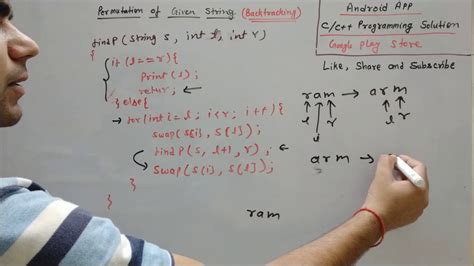 Permutation of Given String (Backtracking)
findP (String S, int l, int r)
{
if (l==r){
Print (S);
retur; ←
} else {
→ for(int i=l; i<r; i++){
swap(S[i], S[l]);
findP(S, l+1, r); ←
Swap(S[i], S[l]);
}
}
}
Android App
C/C++ Programming Solution
Google Play Store
Like, Share and Subscribe
ram → arm
l r l r
i
arm →
ram